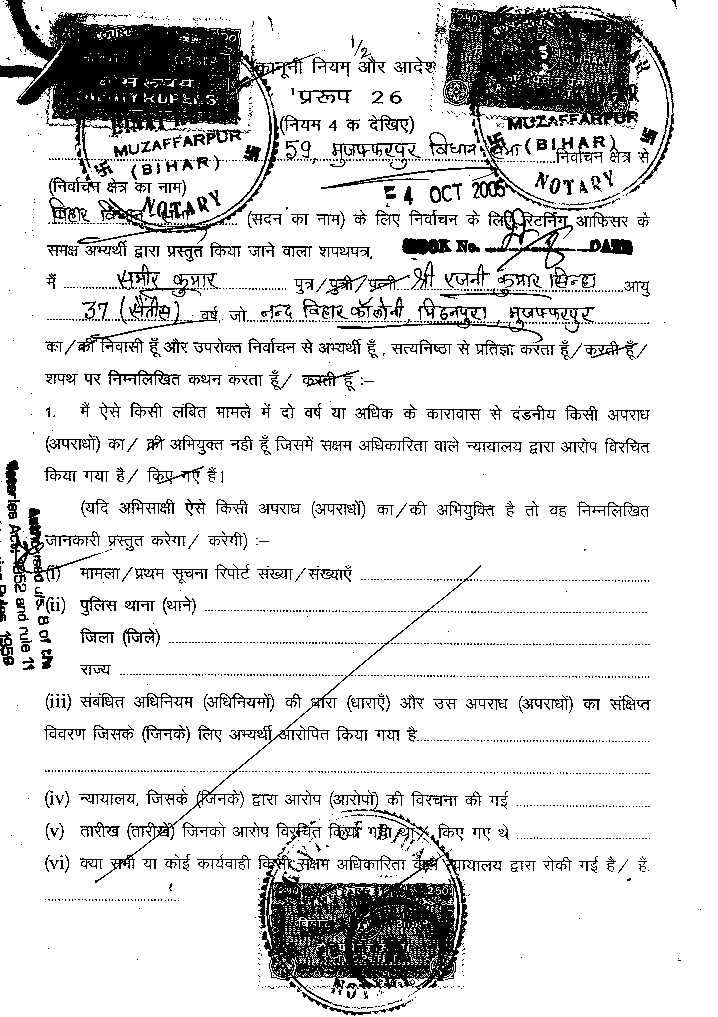 1/2
कानूनी नियम और आदेश
प्ररूप 26
(नियम 4 क देखिए)
MUZAFFARPUR
(BIHAR)
NOTARY
MUZAFFARPUR
(BIHAR)
NOTARY
59, मुजफ्फरपुर विधान सभा निर्वाचन क्षेत्र से
(निर्वाचन क्षेत्र का नाम)
-4 OCT 2005
बिहार विधान सभा (सदन का नाम) के लिए निर्वाचन के लिए रिटर्निंग आफिसर के
समक्ष अभ्यर्थी द्वारा प्रस्तुत किया जाने वाला शपथपत्र,
BOOK No. DATE
मैं समीर कुमार पुत्र/पुत्री/पत्नी श्री रजनी कुमार सिन्हा आयु
37 (सैंतीस) वर्ष, जो नन्द विहार कॉलोनी, मिठनपुरा, मुजफ्फरपुर
का/की निवासी हूँ और उपरोक्त निर्वाचन से अभ्यर्थी हूँ, सत्यनिष्ठा से प्रतिज्ञा करता हूँ/करती हूँ/
शपथ पर निम्नलिखित कथन करता हूँ/ करती हूँ :–
1. मैं ऐसे किसी लंबित मामले में दो वर्ष या अधिक के कारावास से दंडनीय किसी अपराध
(अपराधों) का/ की अभियुक्त नही हूँ जिसमें सक्षम अधिकारिता वाले न्यायालय द्वारा आरोप विरचित
किया गया है/ किए गए हैं।
(यदि अभिसाक्षी ऐसे किसी अपराध (अपराधों) का/की अभियुक्ति है तो वह निम्नलिखित
जानकारी प्रस्तुत करेगा/ करेगी) :–
(i) मामला/प्रथम सूचना रिपोर्ट संख्या/संख्याएँ
(ii) पुलिस थाना (थाने)
जिला (जिले)
राज्य
(iii) संबंधित अधिनियम (अधिनियमों) की धारा (धाराएँ) और उस अपराध (अपराधों) का संक्षिप्त
विवरण जिसके (जिनके) लिए अभ्यर्थी आरोपित किया गया है
(iv) न्यायालय, जिसके (जिनके) द्वारा आरोप (आरोपों) की विरचना की गई
(v) तारीख (तारीखें) जिनको आरोप विरचित किया गया था/ किए गए थे
(vi) क्या सभी या कोई कार्यवाही किसी सक्षम अधिकारिता वाले न्यायालय द्वारा रोकी गई है/ हैं.
Authorised u/s. 8 of the
Notaries Act, 1952 and rule 11
1956
NOTARY